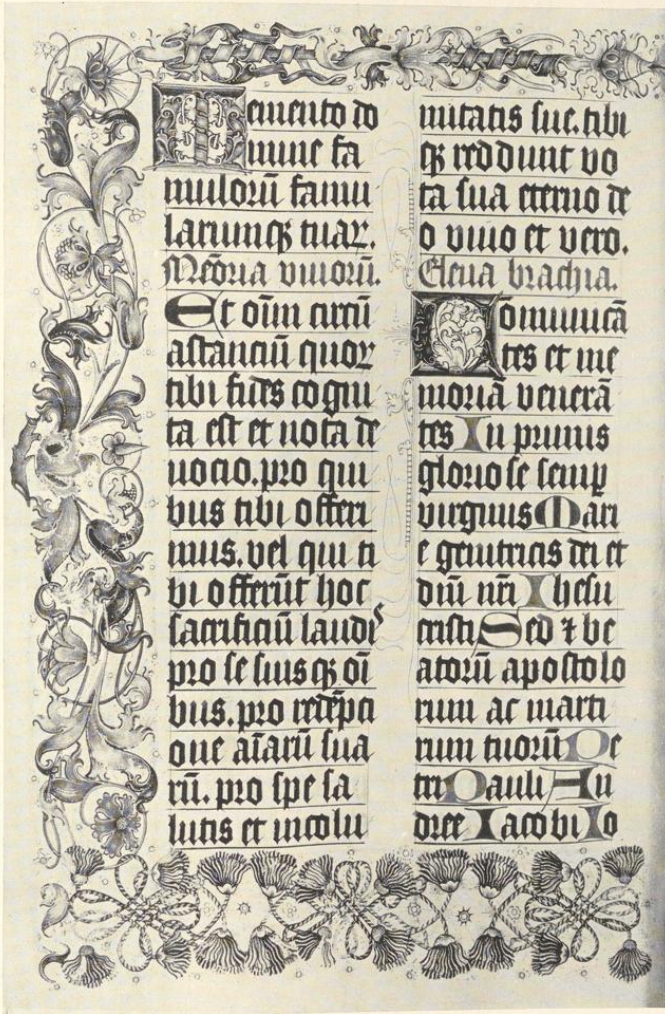 Memento do
mine fa
mulorū famu
larumqꝫ tuaꝝ.
Meōria viuorū.
Et oīm circū
astanciū quoꝝ
tibi fides cogni
ta est et nota de
uocio. pro qui
bus tibi offeri
mus. vel qui ti
bi offerūt hoc
sacrificiū laudis
pro se suisqꝫ oī
bus. pro redēpti
one aīarū sua
rū. pro spe sa
lutis et incolu
mitatis sue. tibi
qꝫ reddunt vo
ta sua eterno de
o viuo et vero.
Eleua brachia.
Comunicā
tes et me
moriā venerā
tes In primis
gloriose semꝑ
virginis Mari
e genitricis dei et
dn̄i nr̄i Ihesu
cristi Sed ⁊ be
atorū apostolo
rum ac marti
rum tuorū Pe
tri Pauli An
dree Iacobi Io